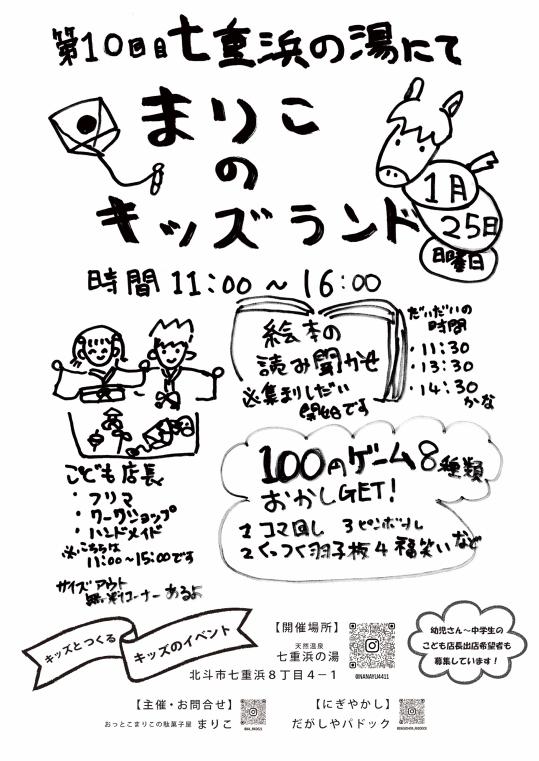 第10回目七重浜の湯にて
まりこ
の
キッズランド
1月
25日
日曜日
時間 11:00 ~ 16:00
絵本の
読み聞かせ
※集まりしだい
開始です
だいだいの
時間
・11:30
・13:30
・14:30
かな
100円ゲーム8種類
おかしGET!
1 コマ回し 3 ピンボール
2 くっつく羽子板 4 福笑い など
こども店長
・フリマ
・ワークショップ
・ハンドメイド
※こちらは
11:00~15:00です
サイズアウト
無料コーナーあるよ
キッズとつくる
キッズのイベント
【開催場所】
天然温泉
七重浜の湯
北斗市七重浜8丁目4−1
@NANAYU4411
幼児さん~中学生の
こども店長出店希望者も
募集しています!
【主催・お問合せ】
おっとこまりこの駄菓子屋 まりこ
【にぎやかし】
だがしやパドック